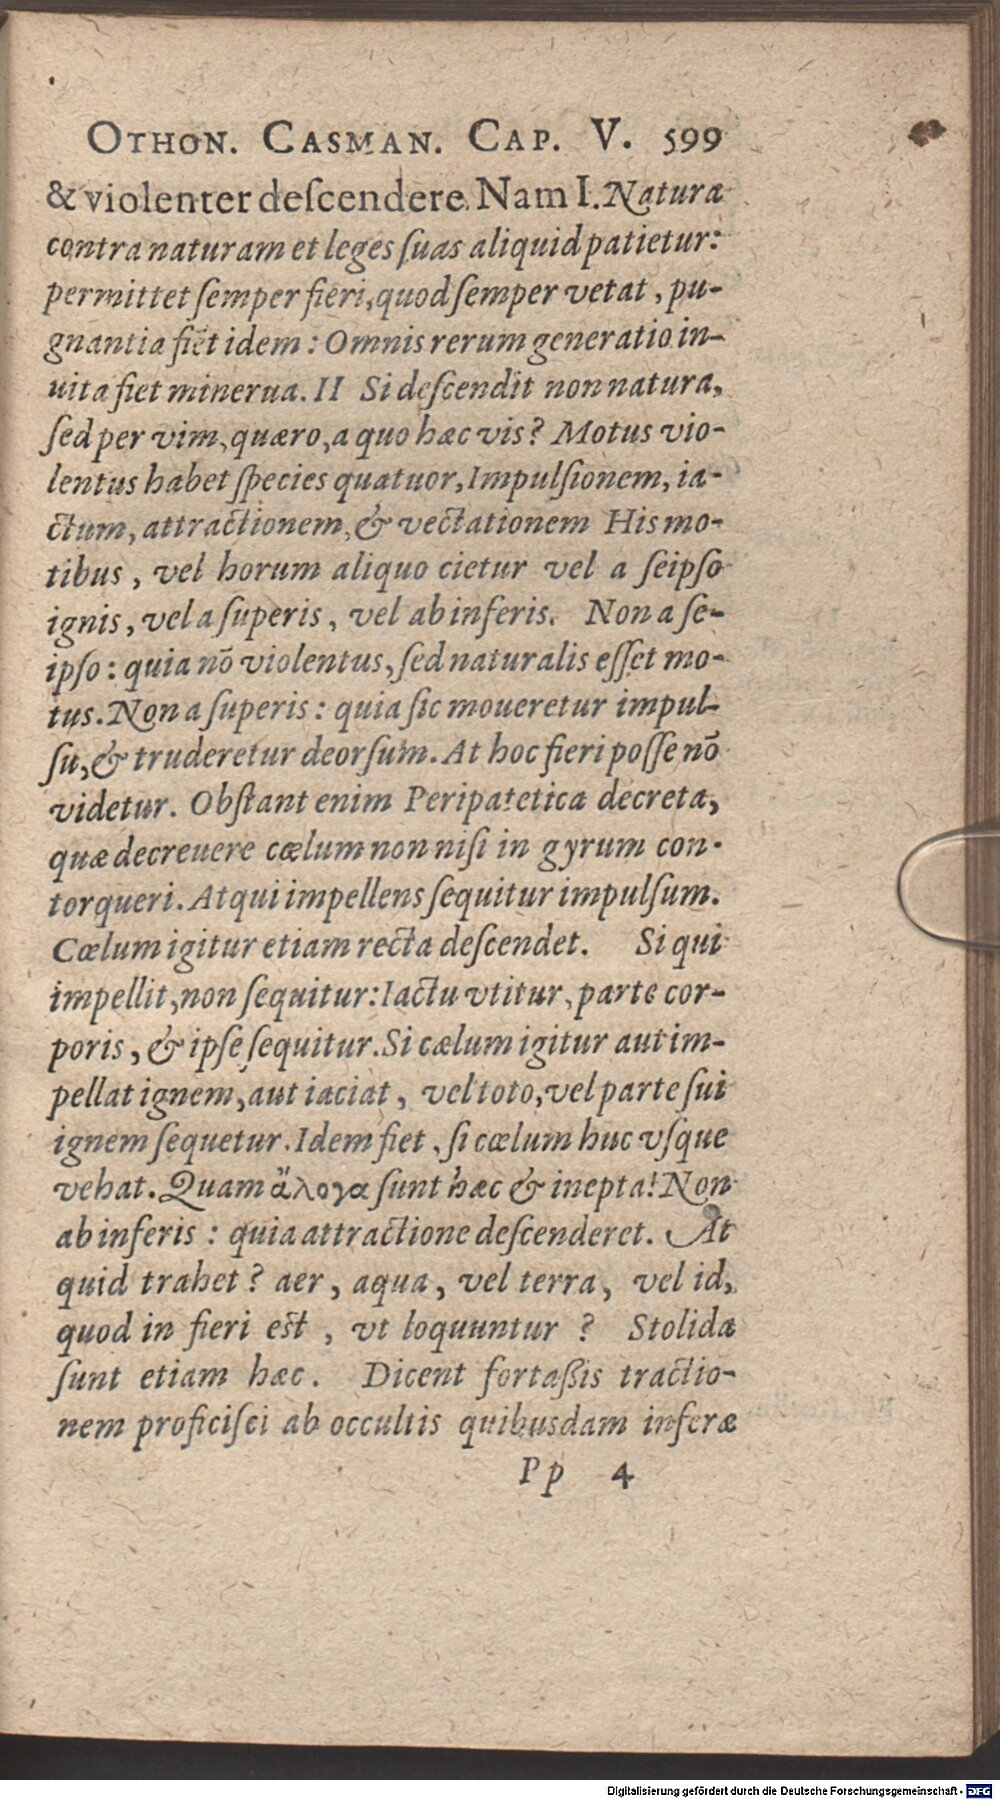 OTHON. CASMAN. CAP. V. 599
& violenter deſcendere. Nam I. Natura
contra naturam et leges ſuas aliquid patietur:
permittet ſemper fieri, quod ſemper vetat, pu-
gnantia fiẽt idem: Omnis rerum generatio in-
uita fiet minerua. II Si deſcendit non natura,
ſed per vim, quæro, a quo hæc vis? Motus vio-
lentus habet ſpecies quatuor, Impulſionem, ia-
ctum, attractionem, & vectationem His mo-
tibus, vel horum aliquo cietur vel a ſeipſo
ignis, vel a ſuperis, vel ab inferis. Non a ſe-
ipſo: quia nō violentus, ſed naturalis eſſet mo-
tus. Non a ſuperis: quia ſic moueretur impul-
ſu, & truderetur deorſum. At hoc fieri poſſe nō
videtur. Obſtant enim Peripatetica decreta,
quæ decreuere cœlum non niſi in gyrum con-
torqueri. Atqui impellens ſequitur impulſum.
Cœlum igitur etiam recta deſcendet. Si qui
impellit, non ſequitur: Iactu vtitur, parte cor-
poris, & ipſe ſequitur. Si cœlum igitur aut im-
pellat ignem, aut iaciat, vel toto, vel parte ſui
ignem ſequetur. Idem fiet, ſi cœlum huc vſque
vehat. Quam ἄλογα ſunt hæc & inepta! Non
ab inferis: quia attractione deſcenderet. At
quid trahet? aer, aqua, vel terra, vel id,
quod in fieri eſt, vt loquuntur? Stolida
ſunt etiam hæc. Dicent fortaßis tractio-
nem proficiſci ab occultis quibusdam inferæ
Pp 4
Digitalisierung gefördert durch die Deutsche Forschungsgemeinschaft - DFG